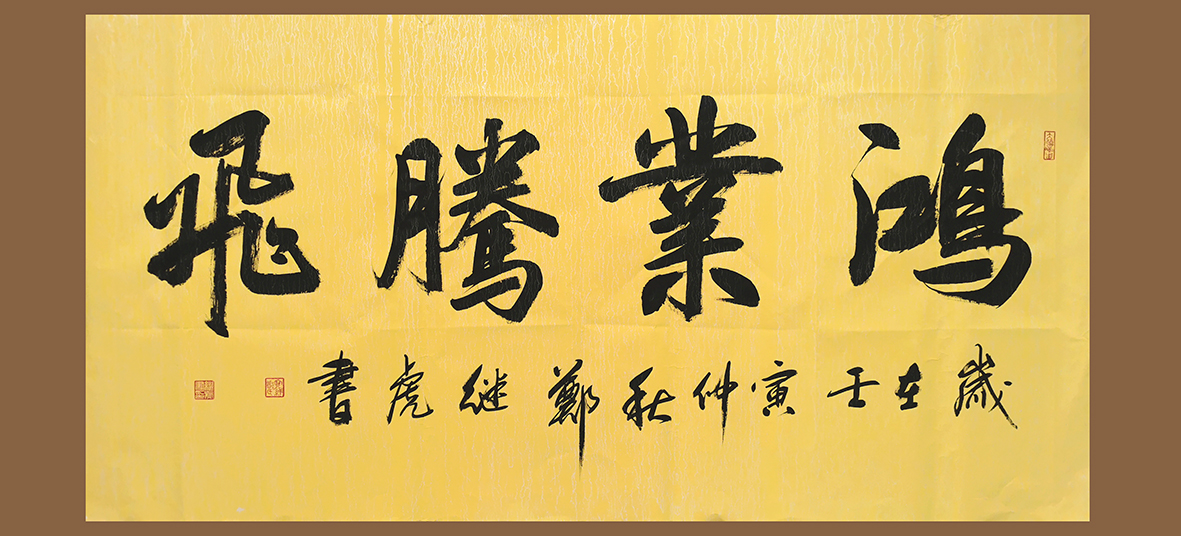 鴻業騰飛
歲在壬寅仲秋鄭継虎書